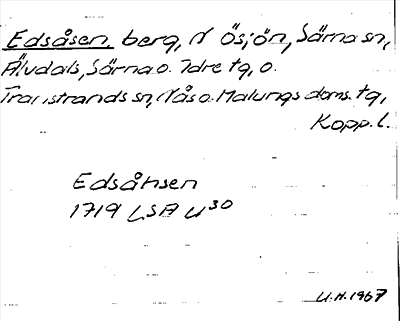 Edsåsen, berg, N Ösjön, Särna sn,
Älvdals, Särna o. Idre tg, o.
Transtrands sn, Nås o. Malungs doms. tg,
Kopp. l.
Edsåhsen
1719 LSA U30
U.H. 1967